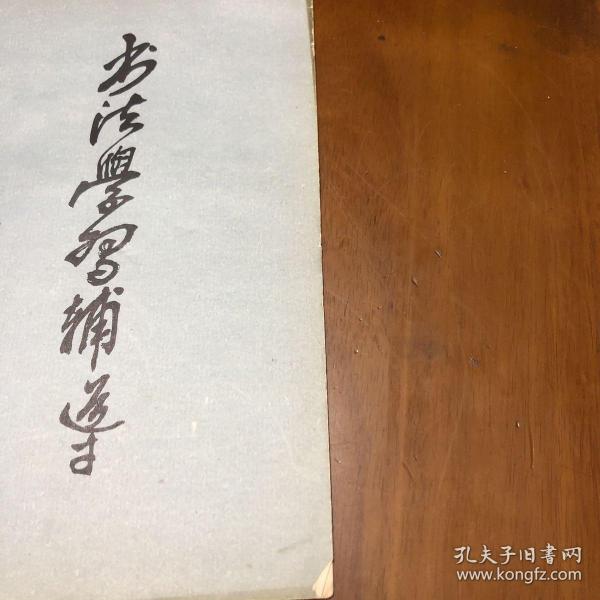 书法學習辅導
孔夫子旧書网
www.kongfz.com